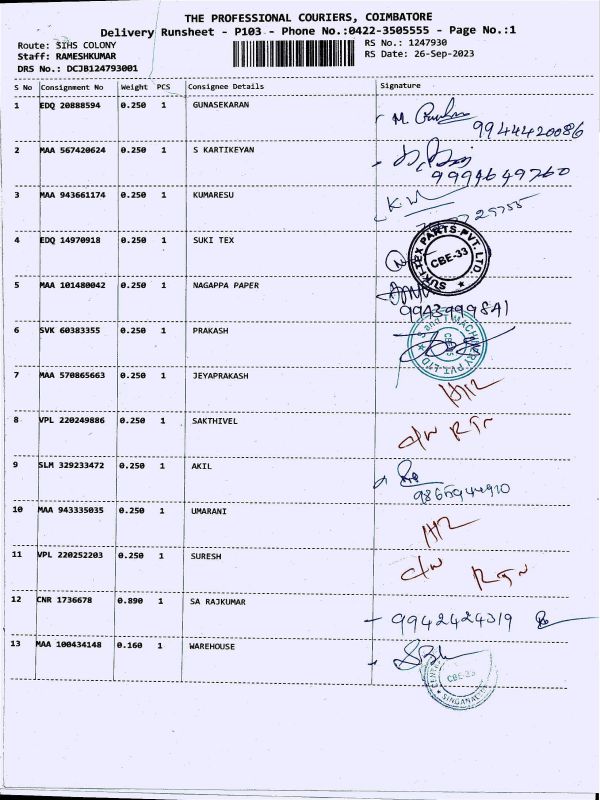 THE PROFESSIONAL COURIERS, COIMBATORE
Delivery Runsheet - P103 - Phone No.:0422-3505555 - Page No.:1
Route: SIHS COLONY
RS No.: 1247930
Staff: RAMESHKUMAR
RS Date: 26-Sep-2023
DRS No.: DCJB124793001
S No Consignment No Weight PCS Consignee Details Signature
1 EDQ 20888594 0.250 1 GUNASEKARAN
9944420086
2 MAA 567420624 0.250 1 S KARTIKEYAN
9994649760
3 MAA 943661174 0.250 1 KUMARESU
4 EDQ 14970918 0.250 1 SUKI TEX
SUKI TEX PARTS PVT. LTD. CBE-33
5 MAA 101480042 0.250 1 NAGAPPA PAPER
9943999841
6 SVK 60383355 0.250 1 PRAKASH
7 MAA 570865663 0.250 1 JEYAPRAKASH
8 VPL 220249886 0.250 1 SAKTHIVEL c/w RTn
9 SLM 329233472 0.250 1 AKIL
9865944910
10 MAA 943335035 0.250 1 UMARANI
11 VPL 220252203 0.250 1 SURESH c/w RTn
12 CNR 1736678 0.890 1 SA RAJKUMAR
9942424319
13 MAA 100434148 0.160 1 WAREHOUSE